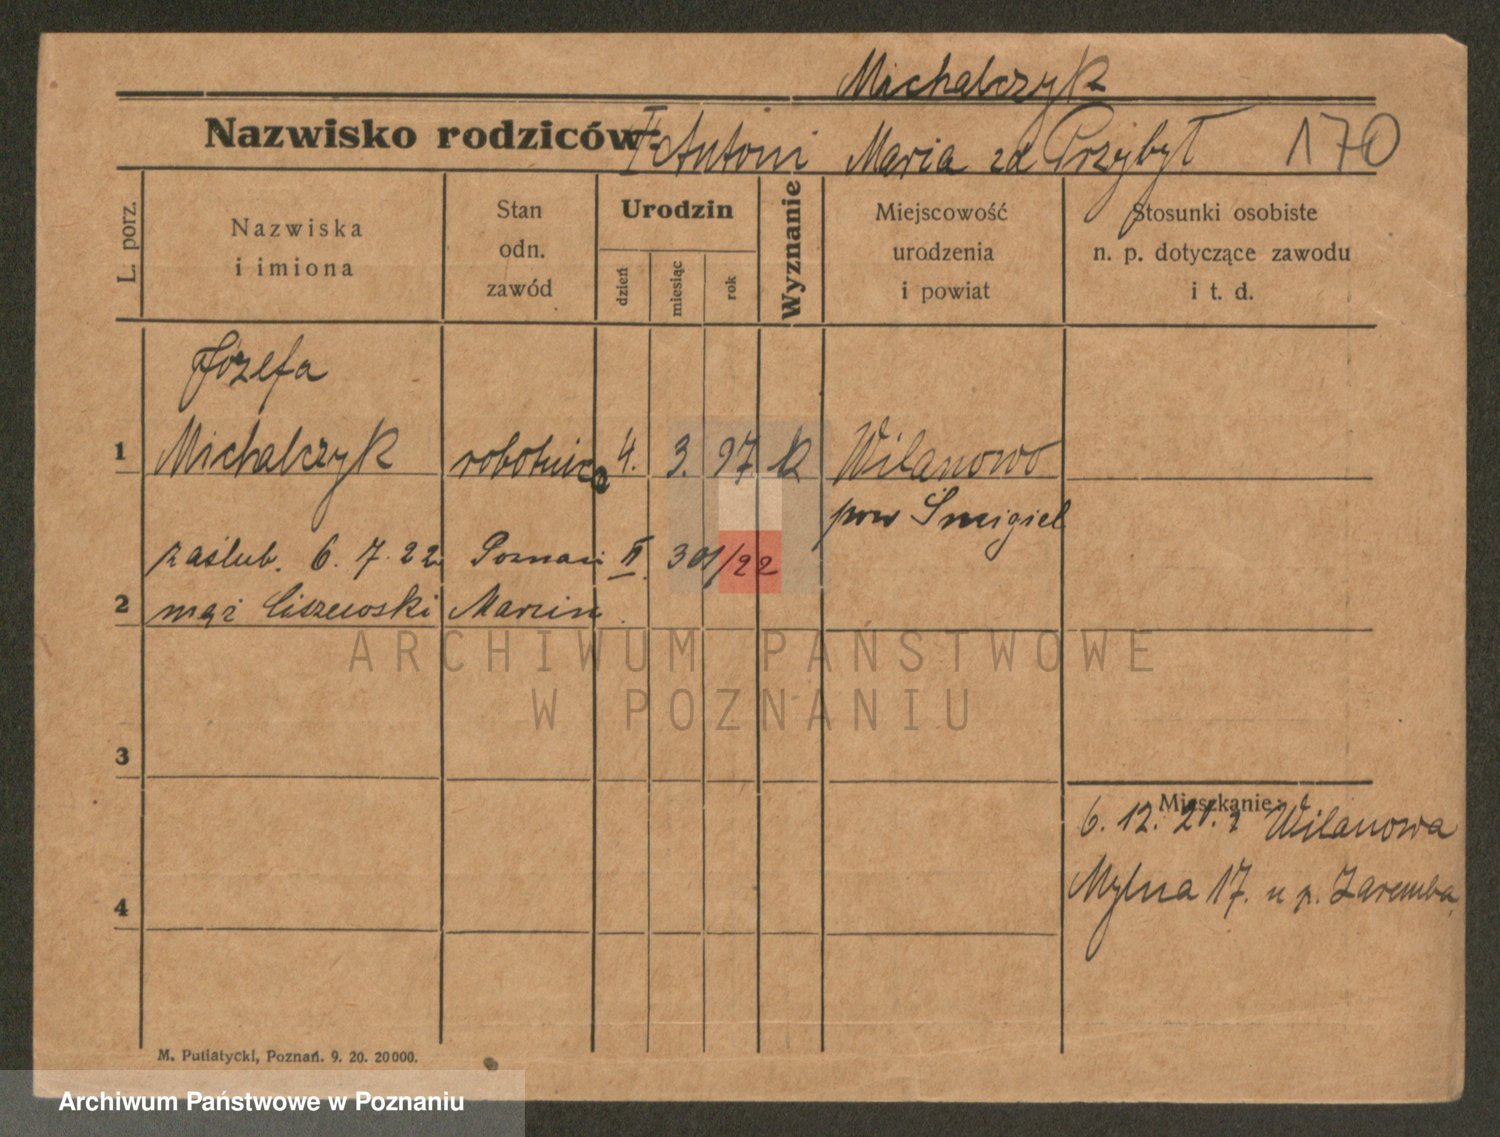 Michalczyk
Nazwisko rodziców: Antoni Maria zd Przybył 170
L. porz.
Nazwiska i imiona
Stan odn. zawód
Urodzin
dzień
miesiąc
rok
Wyznanie
Miejscowość urodzenia i powiat
Stosunki osobiste n. p. dotyczące zawodu i t. d.
Józefa
1 Michalczyk robotnica 4. 3. 97 k Wilanowo
pow Śmigiel
zaślub. 6. 7. 22 Poznań II 301/22
2 mąż Ciszewski Marcin
ARCHIWUM PAŃSTWOWE
W POZNANIU
3
Mieszkanie:
6. 12. 21. z Wilanowa
Mylna 17. u p. Zaremba
4
M. Putiatycki, Poznań. 9. 20. 20000.
Archiwum Państwowe w Poznaniu